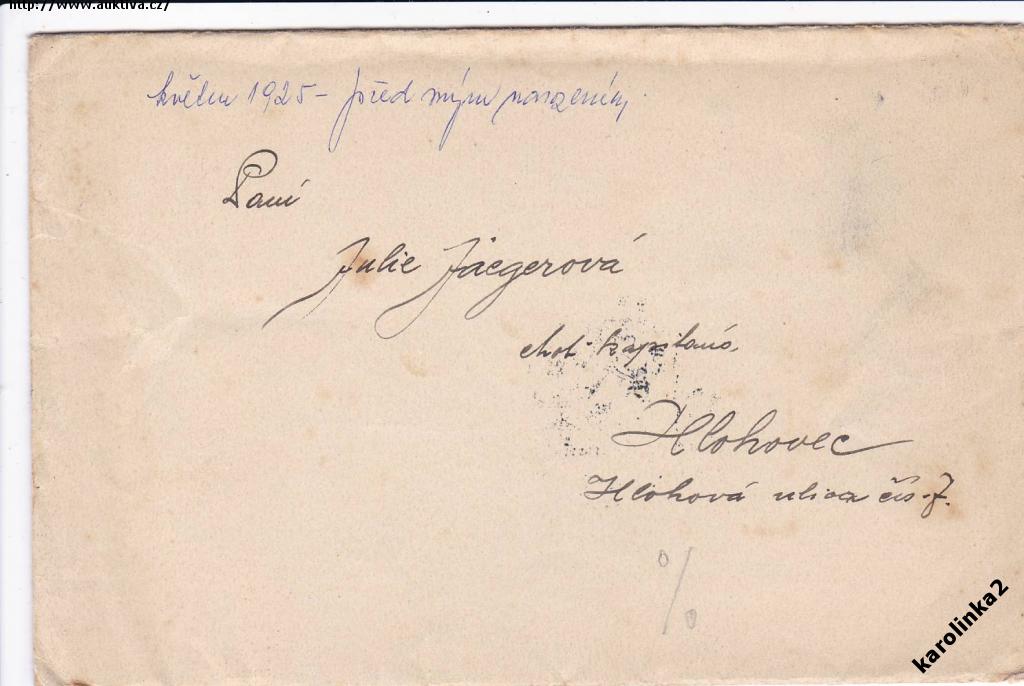 http://www.auktiva.cz/
květen 1925 - před mým narozením
Paní
Julie Jäegerová
choť kapitána
Hlohovec
Hlohová ulica čís. 7.
%
karolinka2